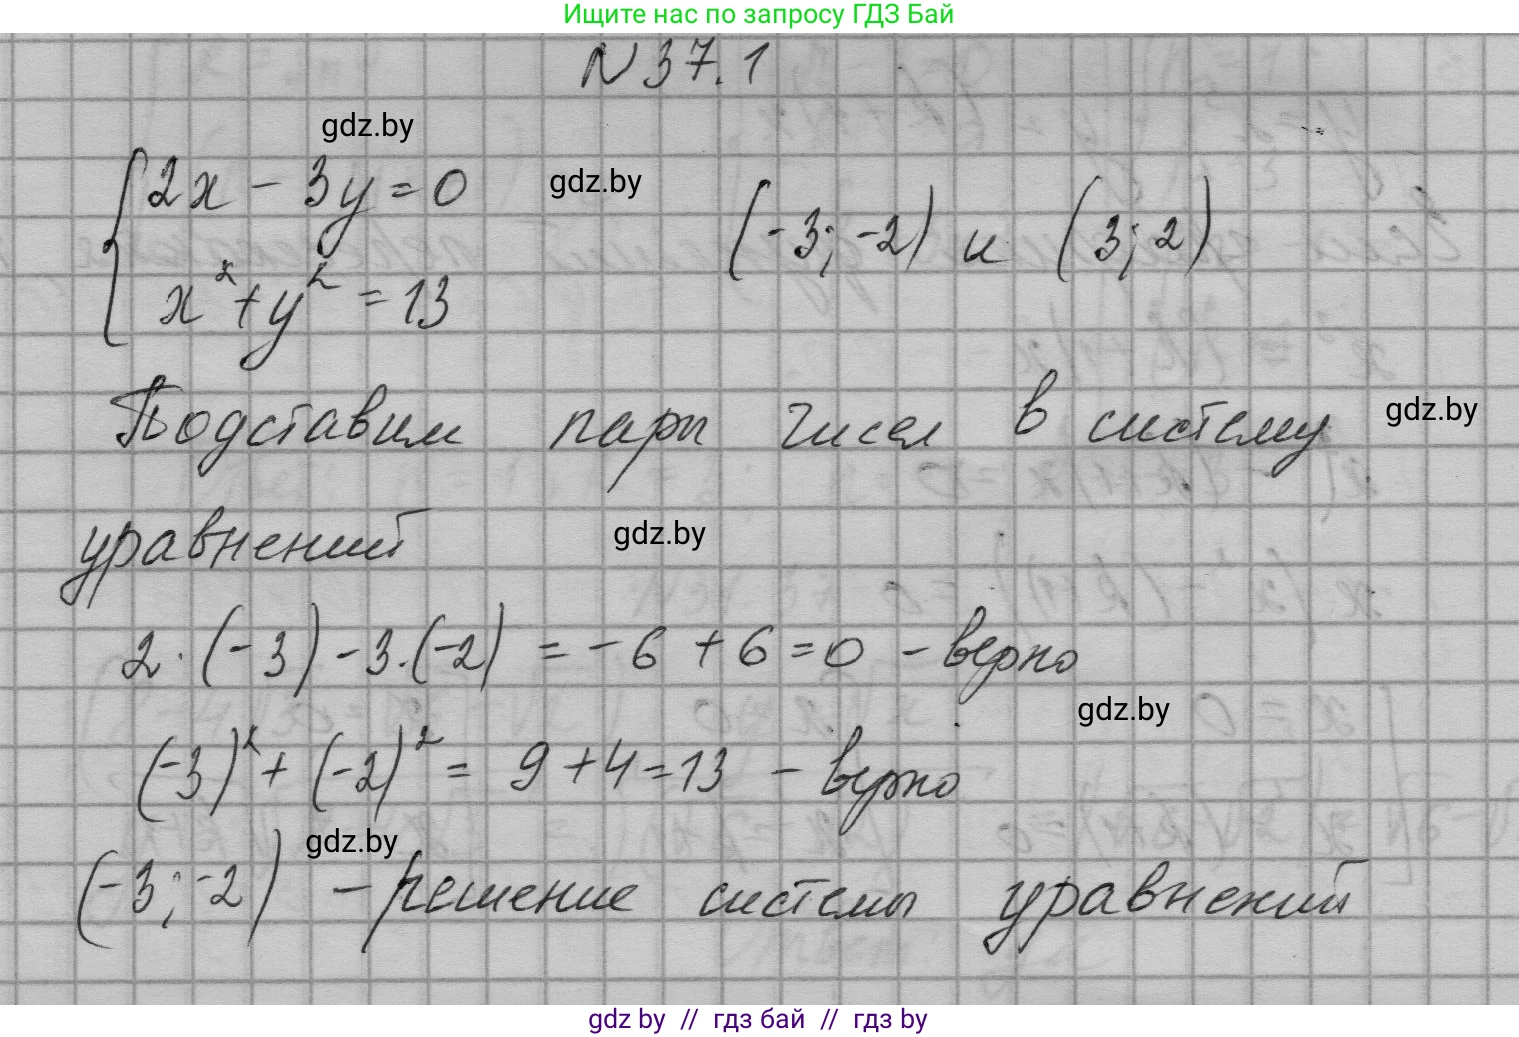 Ищите нас по запросу ГДЗ Бай
N 37.1
gdz.by
2x - 3y = 0
gdz.by
(-3; -2) и (3; 2)
x² + y² = 13
Подставим пары чисел в систему
gdz.by
уравнений
gdz.by
2·(-3) - 3·(-2) = -6 + 6 = 0 - верно
gdz.by
(-3)² + (-2)² = 9 + 4 = 13 - верно
gdz.by
(-3; -2) - решение системы уравнений
gdz by // гдз бай // гдз by